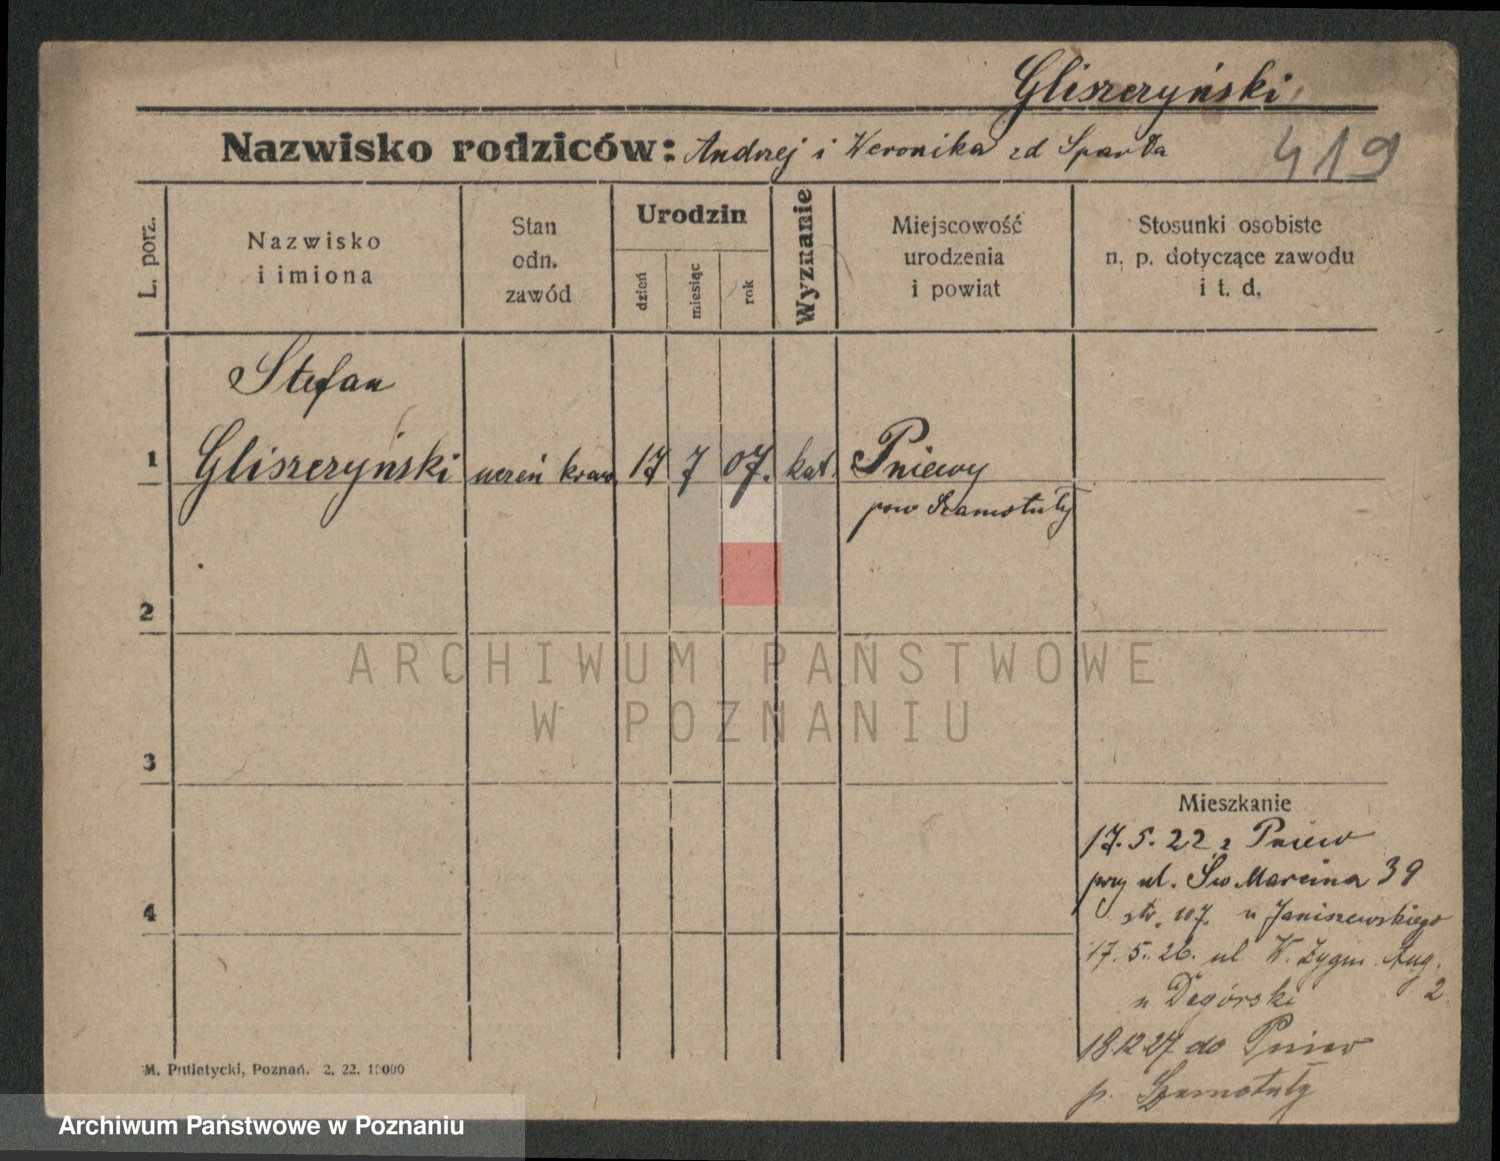 Gliszczyński
Nazwisko rodziców: Andrzej i Weronika zd Sparła
419
L. porz.
Nazwisko
i imiona
Stan
odn.
zawód
Urodzin
dzień
miesiąc
rok
Wyznanie
Miejscowość
urodzenia
i powiat
Stosunki osobiste
n. p. dotyczące zawodu
i t. d.
Stefan
1 Gliszczyński uczeń kraw. 17 7 07. kat. Pniewy
pow Szamotuły
2
ARCHIWUM PAŃSTWOWE
W POZNANIU
3
Mieszkanie
17. 5. 22 z Pniew
przy ul. Św Marcina 39
4
u Janiszewskiego
17. 5. 26. ul. W. Zygm. Aug.
2.
u Degórski
18 12 27 do Pniew
p. Szamotuły
M. Putiatycki, Poznań. 2. 22. 10000
Archiwum Państwowe w Poznaniu